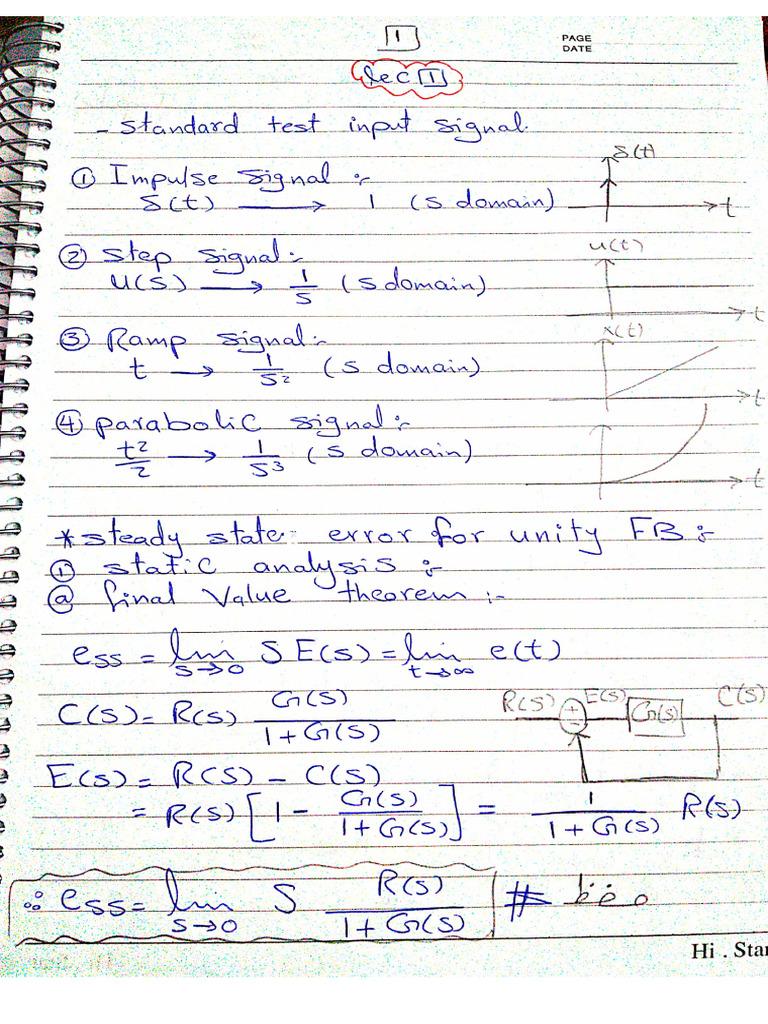 1
PAGE
DATE
Lec 1
- Standard test input signal.
① Impulse signal :-
δ(t) → 1 (s domain)
δ(t)
t
② Step signal:-
u(s) → 1/s (s domain)
u(t)
t
③ Ramp signal:-
t → 1/s² (s domain)
x(t)
t
④ parabolic signal:-
t²/2 → 1/s³ (s domain)
t
* steady state error for unity FB :-
① static analysis :-
ⓐ final value theorem :-
ess = lim s→0 S E(s) = lim t→∞ e(t)
C(s) = R(s) G(s)/(1+G(s))
R(s) + - E(s) G(s) C(s)
E(s) = R(s) - C(s)
= R(s) [1 - G(s)/(1+G(s))] = 1/(1+G(s)) R(s)
∴ ess = lim s→0 S R(s)/(1+G(s)) #
Hi . Star